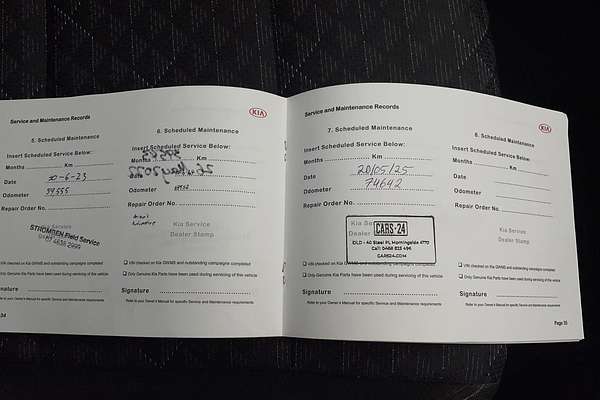 Service and Maintenance Records
KIA
5. Scheduled Maintenance
Insert Scheduled Service Below:
Months Km
Date 20-6-23
Odometer
Repair Order No.
STROMREN Field Service
VIN checked on Kia GWMS and outstanding campaigns completed
Only Genuine Kia Parts have been used during servicing of this vehicle
Signature
Refer to your Owner's Manual for specific Service and Maintenance requirements
34
6. Scheduled Maintenance
Insert Scheduled Service Below:
Months Km
Date
Odometer
Repair Order No.
Kia Service
Dealer Stamp
Service and Maintenance Records
KIA
7. Scheduled Maintenance
Insert Scheduled Service Below:
Months Km
Date 20/05/25
Odometer 74642
Repair Order No.
Kia
Dealer
CARS·24
IDLD - 40 Steel Pl, Morningside 4170
Call: 0468 823 496
CARS24.COM
VIN checked on Kia GWMS and outstanding campaigns completed
Only Genuine Kia Parts have been used during servicing of this vehicle
Signature
Refer to your Owner's Manual for specific Service and Maintenance requirements
8. Scheduled Maintenance
Insert Scheduled Service Below:
Months Km
Date
Odometer
Repair Order No.
Kia Service
Dealer Stamp
VIN checked on Kia GWMS and outstanding campaigns completed
Only Genuine Kia Parts have been used during servicing of this vehicle
Signature
Refer to your Owner's Manual for specific Service and Maintenance requirements
Page 35